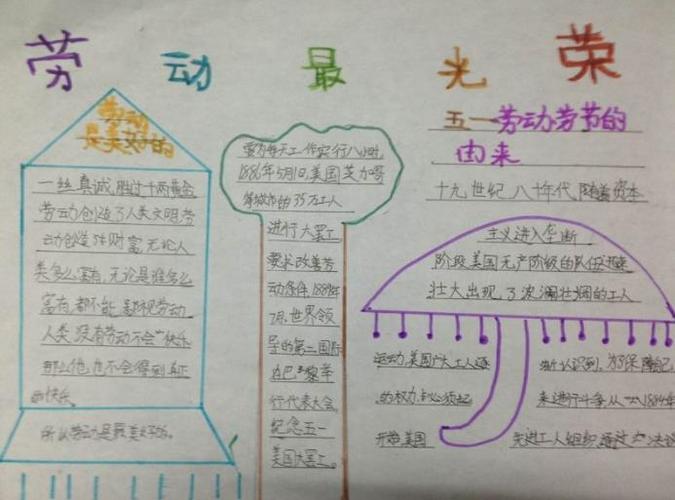 劳动最光荣
劳动
是美好的
一丝真诚，胜过千两黄金
劳动创造了人类文明，劳
动创造了财富，无论人
类多么富有，无论是谁多么
富有，都不能 劳动
人类没有劳动不会 快乐
那么他也不会得到真正
的快乐。
所以劳动是最美好的。
要为每天工作实行八小时，
1886年5月1日，美国芝加哥
等城市的35万工人
进行大罢工
要求改善劳
动条件，1889年
7月，世界领
导的第二国际
在巴黎举
行代表大会
纪念五一
美国大罢工。
五一劳动劳节的
由来
十九世纪八十年代，随着资本
主义进入垄断
阶段，美国无产阶级的队伍迅速
壮大，出现了波澜壮阔的工人
运动，美国广大工人逐
渐认识到，为了保障自己
的权力，必须起
来进行斗争，从一八八四年
开始，美国
先进工人组织通过 决议